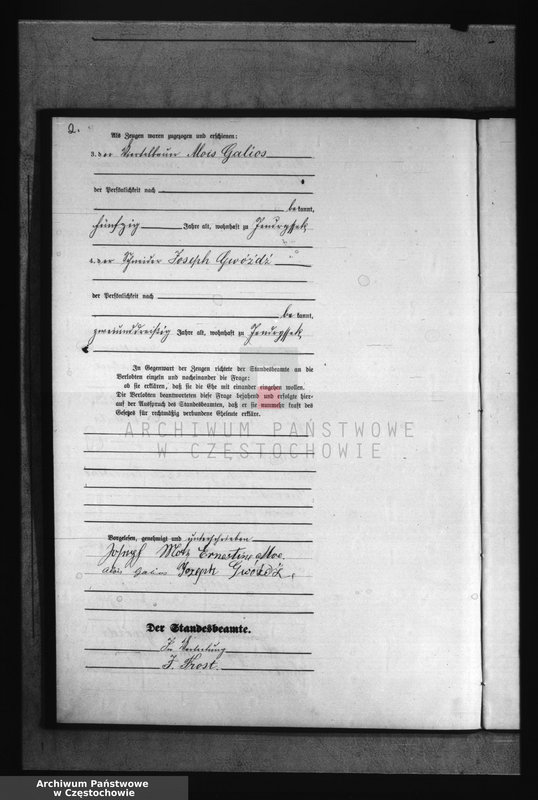 2.
Als Zeugen waren zugezogen und erschienen:
3. der Viertelbauer Alois Galios
der Persönlichkeit nach
be kannt,
fünfzig Jahre alt, wohnhaft zu Jendryssek
4. der Schneider Joseph Gwóźdź
der Persönlichkeit nach
be kannt,
zweiunddreißig Jahre alt, wohnhaft zu Jendryssek
In Gegenwart der Zeugen richtete der Standesbeamte an die
Verlobten einzeln und nacheinander die Frage:
ob sie erklären, daß sie die Ehe mit einander eingehen wollen.
Die Verlobten beantworteten diese Frage bejahend und erfolgte hier-
auf der Ausspruch des Standesbeamten, daß er sie nunmehr kraft des
Gesetzes für rechtmäßig verbundene Eheleute erkläre.
ARCHIWUM PAŃSTWOWE
W CZĘSTOCHOWIE
Vorgelesen, genehmigt und unterschrieben
Joseph Motz Ernestine Moc
Alois Galios Jozeph Gwóźdź.
Der Standesbeamte.
In Vertretung
J. Frost.
Archiwum Państwowe
w Częstochowie